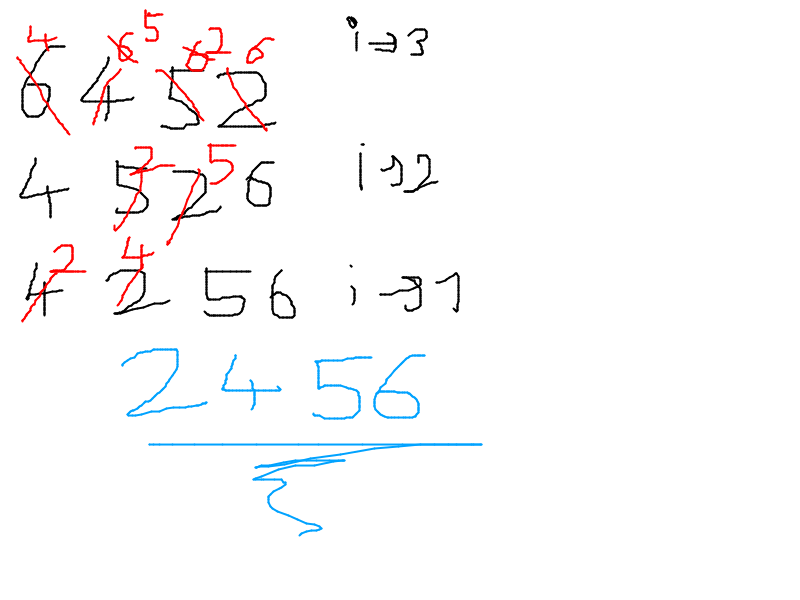 4 6 5 6 2 6
6 4 5 2 i → 3
2 5
4 5 2 6 i → 2
2 4
4 2 5 6 i → 1
2 4 5 6